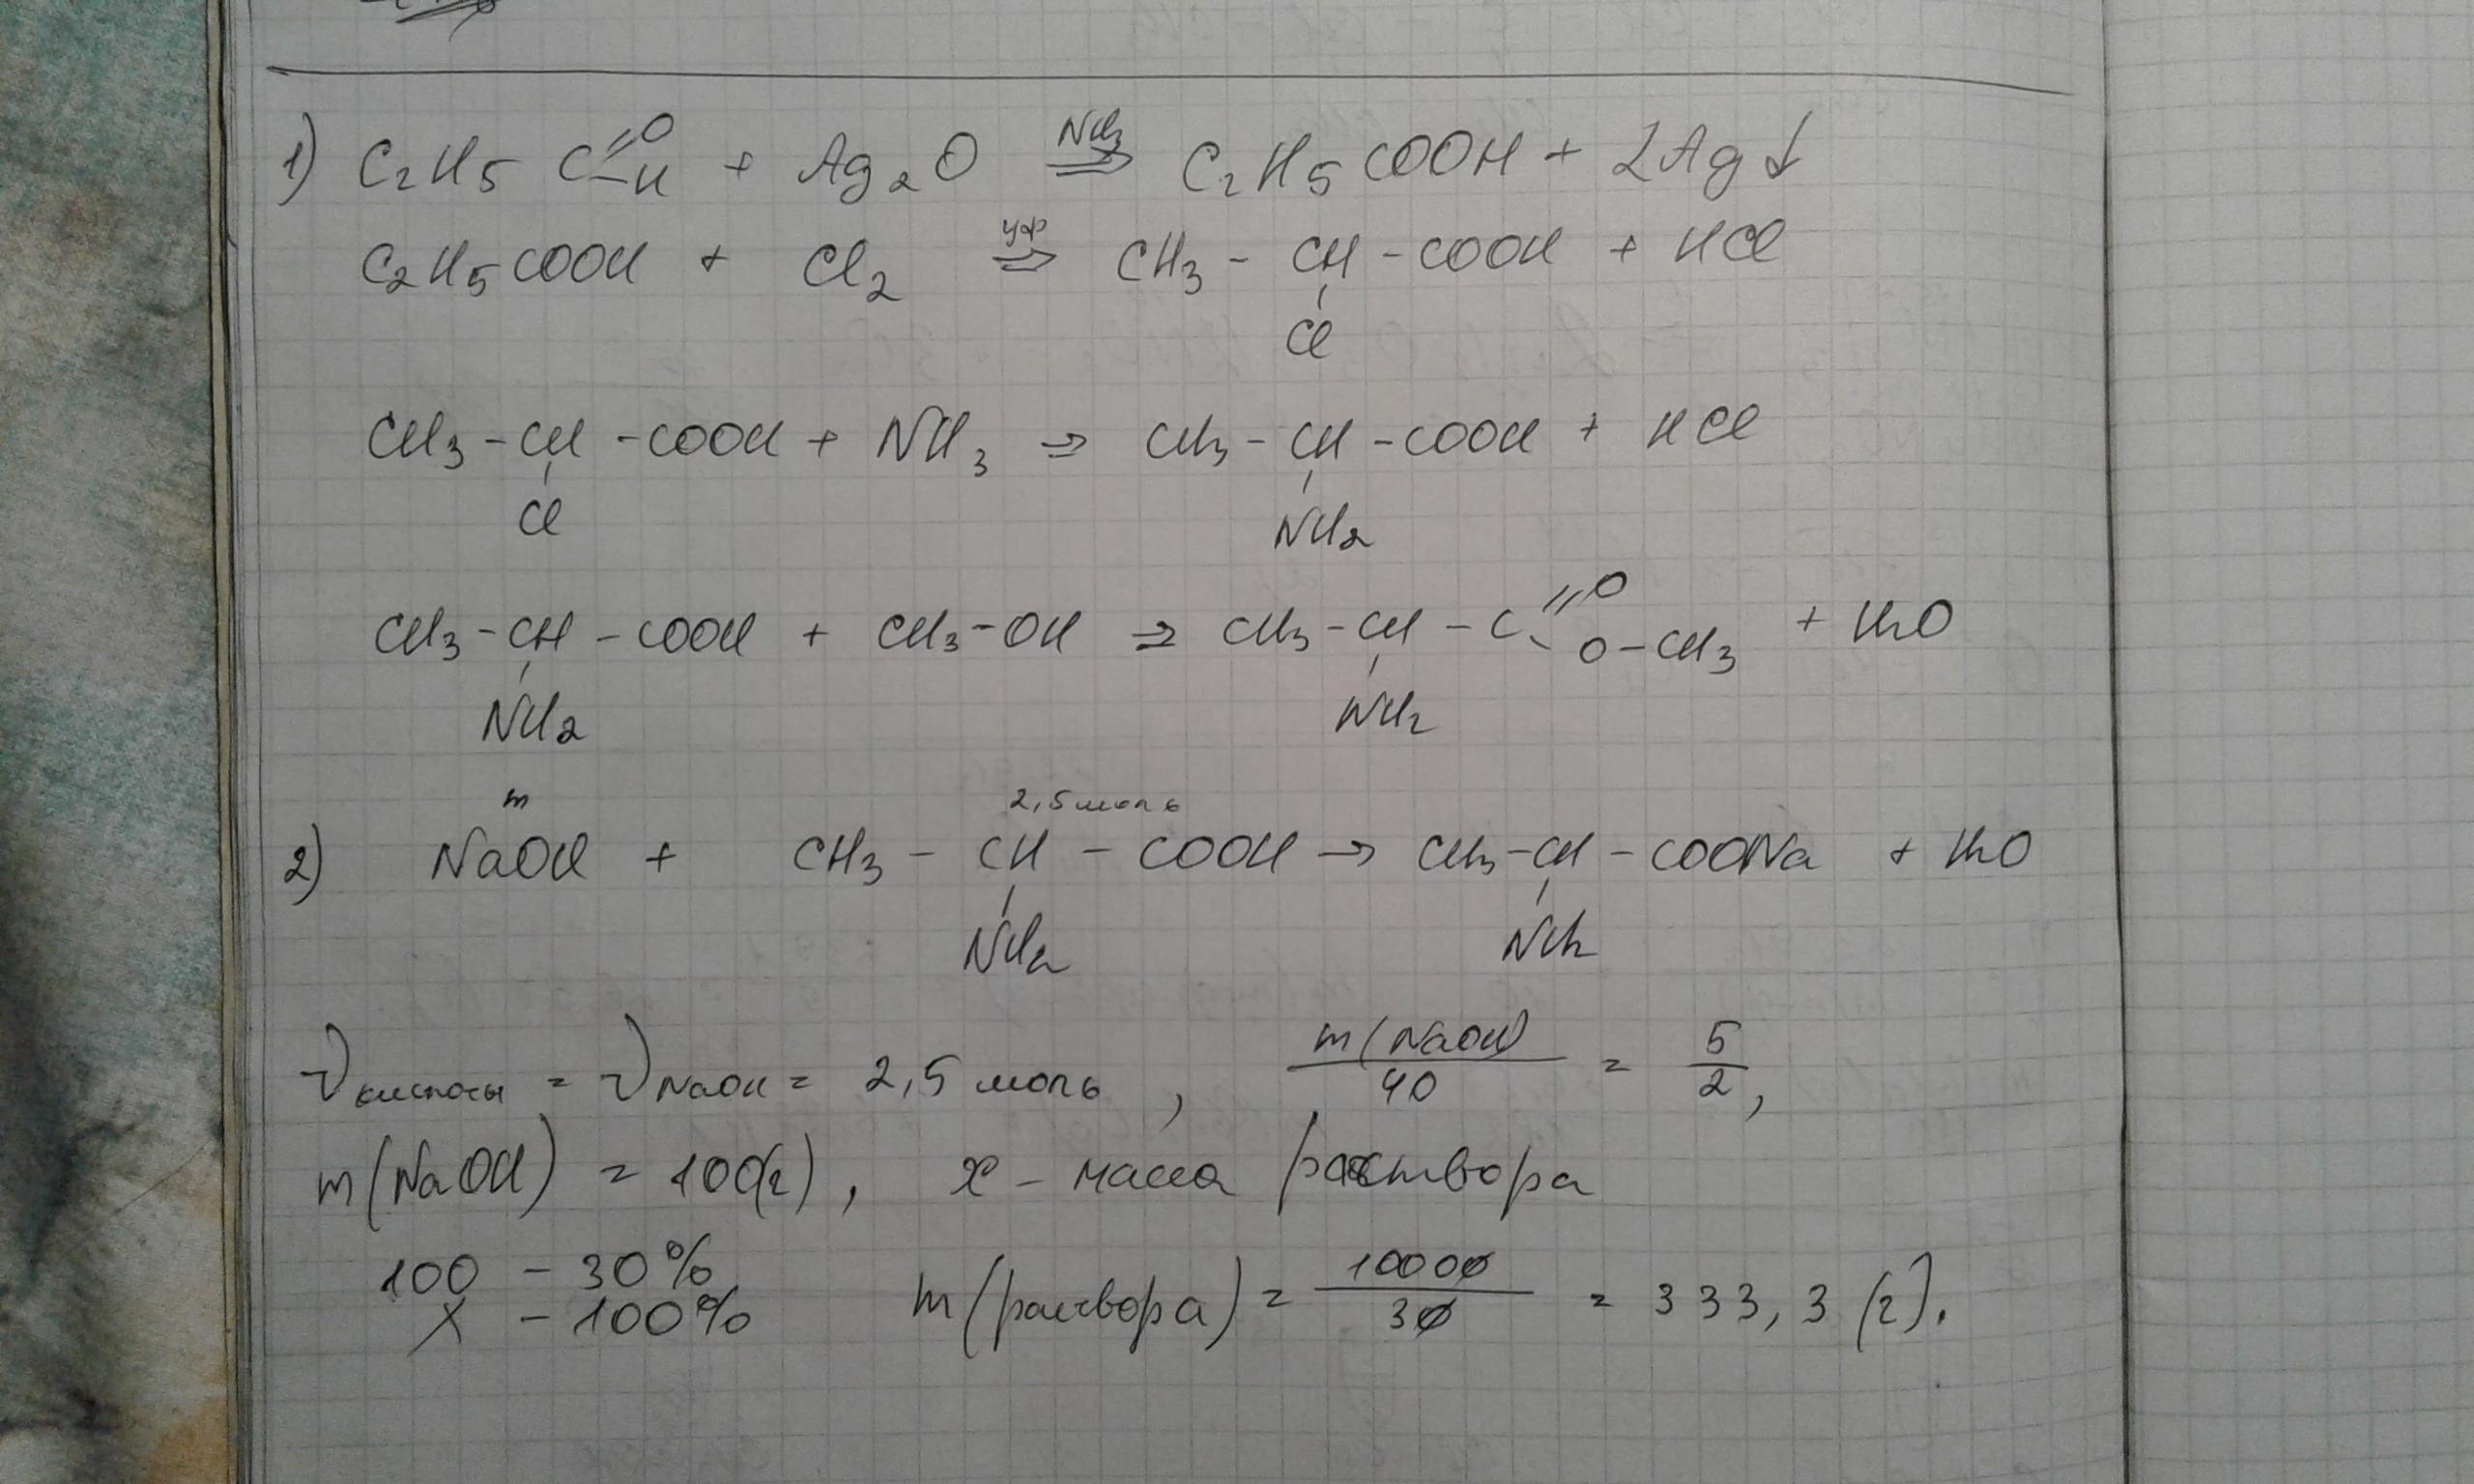 1) C₂H₅ C=O-H + Ag₂O ⇒ NH₃ C₂H₅COOH + 2Ag↓
C₂H₅COOH + Cl₂ ⇒ уф CH₃ - CH - COOH + HCl
Cl
CH₃ - CH - COOH + NH₃ ⇒ CH₃ - CH - COOH + HCl
Cl NH₂
CH₃ - CH - COOH + CH₃ - OH ⇒ CH₃ - CH - C=O O - CH₃ + H₂O
NH₂ NH₂
m 2,5 моль
2) NaOH + CH₃ - CH - COOH → CH₃ - CH - COONa + H₂O
NH₂ NH₂
ν кислоты = ν NaOH = 2,5 моль , m(NaOH)/40 = 5/2,
m(NaOH) = 100(г), x - масса раствора
100 - 30%
x - 100% m(раствора) = 10000/30 = 333,3 (г).